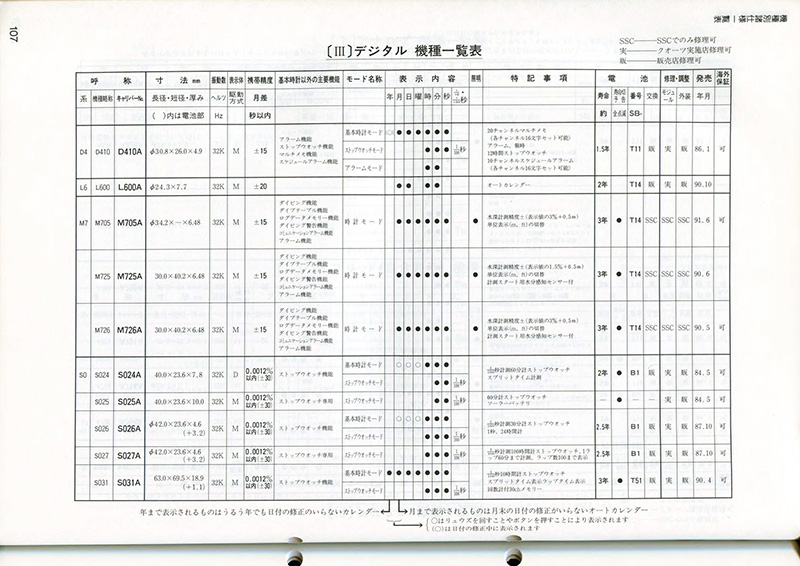 107
機種別諸仕様一覧表
〔Ⅲ〕デジタル 機種一覧表
SSC―――SSCでのみ修理可
実―――クオーツ実施店修理可
販―――販売店修理可
呼 称 寸 法 mm 振動数 表示体 携帯精度 基本時計以外の主要機能 モード名称 表 示 内 容 照明 特 記 事 項 電 池 修理・調整 発売 海外保証
系 機種略称 キャリバーNo. 長径・短径・厚み ヘルツ 駆動方式 月差 年 月 日 曜 時 分 秒 寿命 番号 交換 モジュール 外装 年月
( )内は電池部 Hz 秒以内 約 SB-
D4 D410 D410A φ30.8×26.0×4.9 32K M ±15
アラーム機能
ストップウオッチ機能
マルチメモ機能
スケジュールアラーム機能
基本時計モード ○●●●●●●
ストップウオッチモード ●●● 1/100秒
アラームモード ●●
20チャンネルマルチメモ
(各チャンネル16文字セット可能)
アラーム、報時
12時間ストップウオッチ
10チャンネルスケジュールアラーム
(各チャンネル16文字セット可能)
1.5年 T11 販 実 販 86.1 可
L6 L600 L600A φ24.3×7.7 32K M ±20 ●● ●● オートカレンダー 2年 T14 販 実 販 90.10
M7 M705 M705A φ34.2×-×6.48 32K M ±15
ダイビング機能
ダイブテーブル機能
ログデータメモリー機能
ダイビング警告機能
コミュニケーションアラーム機能
アラーム機能
時計モード ●●●●●● ●
水深計測精度±(表示値の3%+0.5m)
単位表示(m, ft)の切替
3年 ● T14 SSC SSC SSC 91.6 可
M725 M725A 30.0×40.2×6.48 32K M ±15
ダイビング機能
ダイブテーブル機能
ログデータメモリー機能
ダイビング警告機能
コミュニケーションアラーム機能
アラーム機能
時計モード ●●●●●● ●
水深計測精度±(表示値の1.5%+0.5m)
単位表示(m, ft)の切替
計測スタート用水分感知センサー付
3年 ● T14 SSC SSC SSC 90.6
M726 M726A 30.0×40.2×6.48 32K M ±15
ダイビング機能
ダイブテーブル機能
ログデータメモリー機能
ダイビング警告機能
コミュニケーションアラーム機能
アラーム機能
時計モード ●●●●●● ●
水深計測精度±(表示値の3%+0.5m)
単位表示(m, ft)の切替
計測スタート用水分感知センサー付
3年 ● T14 SSC SSC SSC 90.5 可
S0 S024 S024A 40.0×23.6×7.8 32K D 0.0012%以内(±30) ストップウオッチ機能
基本時計モード ○○○●●●
ストップウオッチモード ●● 1/100秒
1/100秒計測60分計ストップウオッチ
スプリットタイム計測
2年 ● B1 販 実 販 84.5 可
S025 S025A 40.0×23.6×10.0 32K M 0.0012%以内(±30) ストップウオッチ専用 ストップウオッチモード ●● 1/100秒
60分計ストップウオッチ
ソーラーバッテリ
― ● ― 実 販 84.5 可
S026 S026A φ42.0×23.6×4.6 (+3.2) 32K M 0.0012%以内(±30) ストップウオッチ機能
基本時計モード ○○○●●●
ストップウオッチモード ●● 1/100秒
1/100秒計測30分計ストップウオッチ
1秒、24時間計
2.5年 B1 販 実 販 87.10 可
S027 S027A φ42.0×23.6×4.6 (+3.2) 32K M 0.0012%以内(±30) ストップウオッチ専用 ストップウオッチモード ●●● 1/100秒
1/100秒計測100時間計ストップウオッチ、1ラップ60分まで計測、ラップ数100まで表示
2.5年 B1 販 実 販 87.10 可
S031 S031A 63.0×69.5×18.9 (+1.1) 32K M 0.0012%以内(±30) ストップウオッチ機能
基本時計モード ●●●●●●●
ストップウオッチモード ●●● 1/100秒
1/100秒10時間計ストップウオッチ
スプリットタイム表示ラップタイム表示
回数計付30ch.メモリー
3年 ● T51 販 実 販 90.4 可
年まで表示されるものはうるう年でも日付の修正のいらないカレンダー
月まで表示されるものは月末の日付の修正がいらないオートカレンダー
○はリュウズを回すことやボタンを押すことにより表示されます
(○)は日付の修正中に表示されます